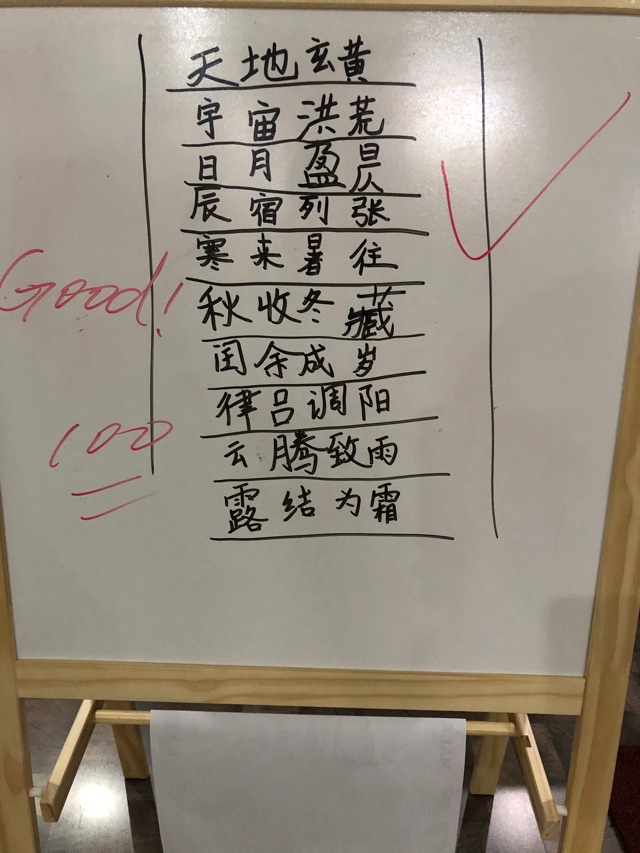 天地玄黄
宇宙洪荒
日月盈昃
辰宿列张
寒来暑往
Good!
秋收冬藏
闰余成岁
律吕调阳
100
云腾致雨
露结为霜